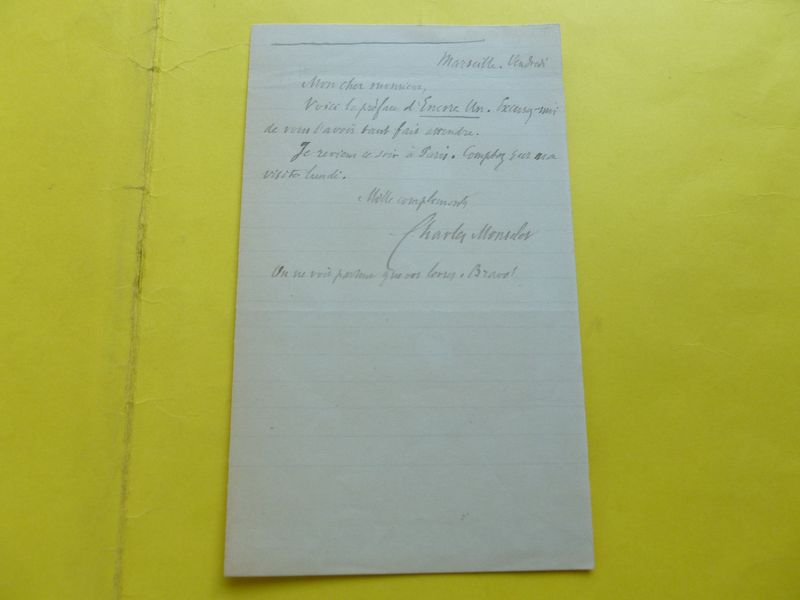 Marseille. Vendredi
Mon cher monsieur,
Voici la préface d'Encore Un. Excusez-moi
de vous l'avoir tant fait attendre.
Je reviens ce soir à Paris. Comptez sur ma
visite lundi.
Mille compliments
Charles Monselet
On ne voit partout que vos livres. Bravo!